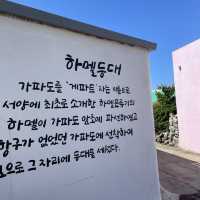 하멜등대
가파도를 '케파트'라는 이름으로
서양에 최초로 소개한 하멜표류기의
하멜이 가파도 암초에 파선하였고
항구가 없었던 가파도에 선착하며
으로 그 자리에 등대를 세웠다.